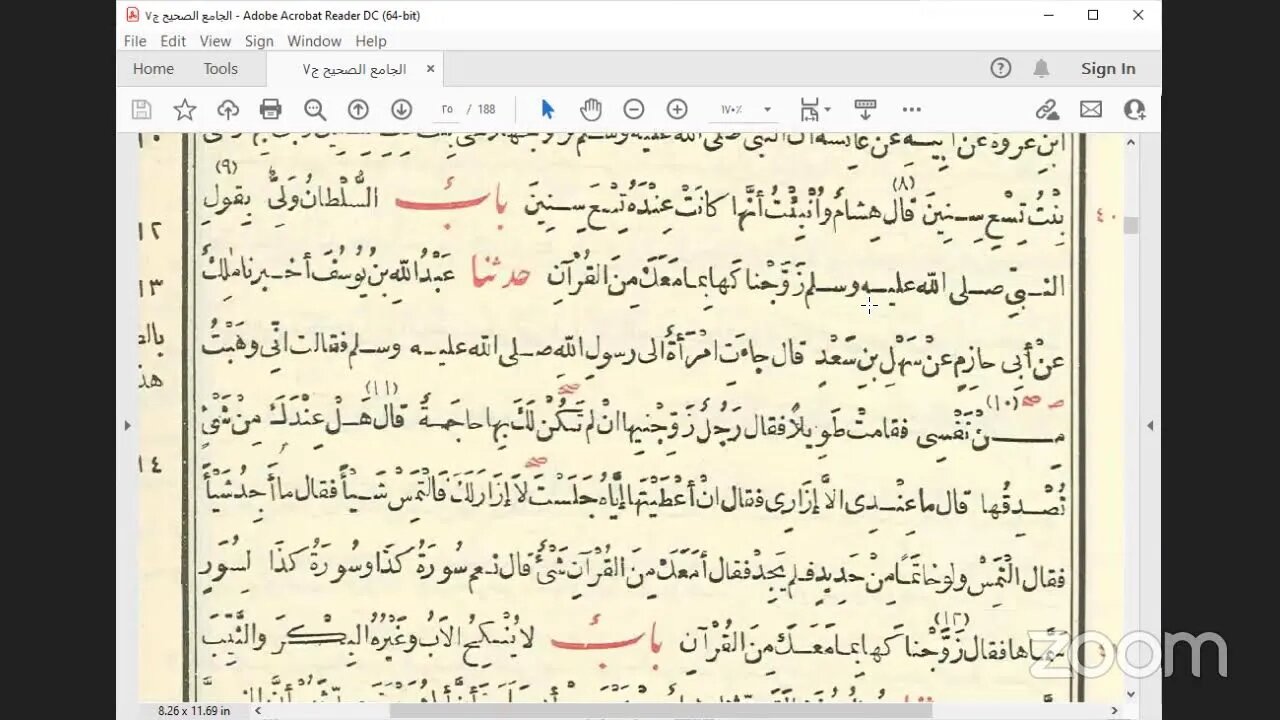 الجامع الصحيح ج٧ - Adobe Acrobat Reader DC (64-bit)
File Edit View Sign Window Help
Home Tools الجامع الصحيح ج٧ × Sign In
٢٥ / 188 ١٧٠٪
ابن عروة عن أبيه عن عائشة أن النبي صلى الله عليه وسلم
بِنْتُ تِسْعِ سِنِينَ (٨) قال هِشامٌ وأُنْبِئْتُ أنَّها كانَتْ عِنْدَهُ تِسْعَ سِنِينَ بابٌ السُّلْطانُ وَلِىٌّ (٩) بِقَوْلِ
٤٠
النبيِّ صلى الله عليه وسلم زَوَّجْناكَها بِما مَعَكَ مِنَ القُرْآنِ حدثنا عَبْدُ اللهِ بنُ يُوسُفَ أخبرنا مٰلِكٌ
عنْ أبى حازِمٍ عنْ سَهْلِ بنِ سَعْدٍ قال جاءَتِ امْرَأَةٌ الى رسولِ اللهِ صلى الله عليه وسلم فقالت انّى وهَبْتُ
مِنْ نَفْسِى (١٠) فقامتْ طَوِيلًا فقال رَجُلٌ زَوِّجْنِيها انْ لم تَكُنْ لَكَ بِها حاجَةٌ (١١) قال هَلْ عِنْدَكَ مِنْ شَىْءٍ
تُصْدِقُها قال ما عِنْدِى الاَّ إزارِى فقال انْ أعْطَيْتَها إيَّاهُ جَلَسْتَ لا إزارَ لَكَ فالْتَمِسْ شَيْأً فقال ما أجِدُ شَيْأً
فقال الْتَمِسْ ولو خاتَمًا مِنْ حَدِيدٍ فلم يَجِدْ فقال أمَعَكَ مِنَ القُرْآنِ شَىْءٌ قال نعم سُورَةُ كَذا وسُورَةُ كذا لِسُوَرٍ
سَمَّاها فقال زَوَّجْناكَها (١٢) بِما مَعَكَ مِنَ القُرْآنِ بابٌ لا يُنْكِحُ الأَبُ وغَيْرُهُ البِكْرَ والثَّيِّبَ
١٢
١٣
هذ
١٤
zoom
8.26 x 11.69 in